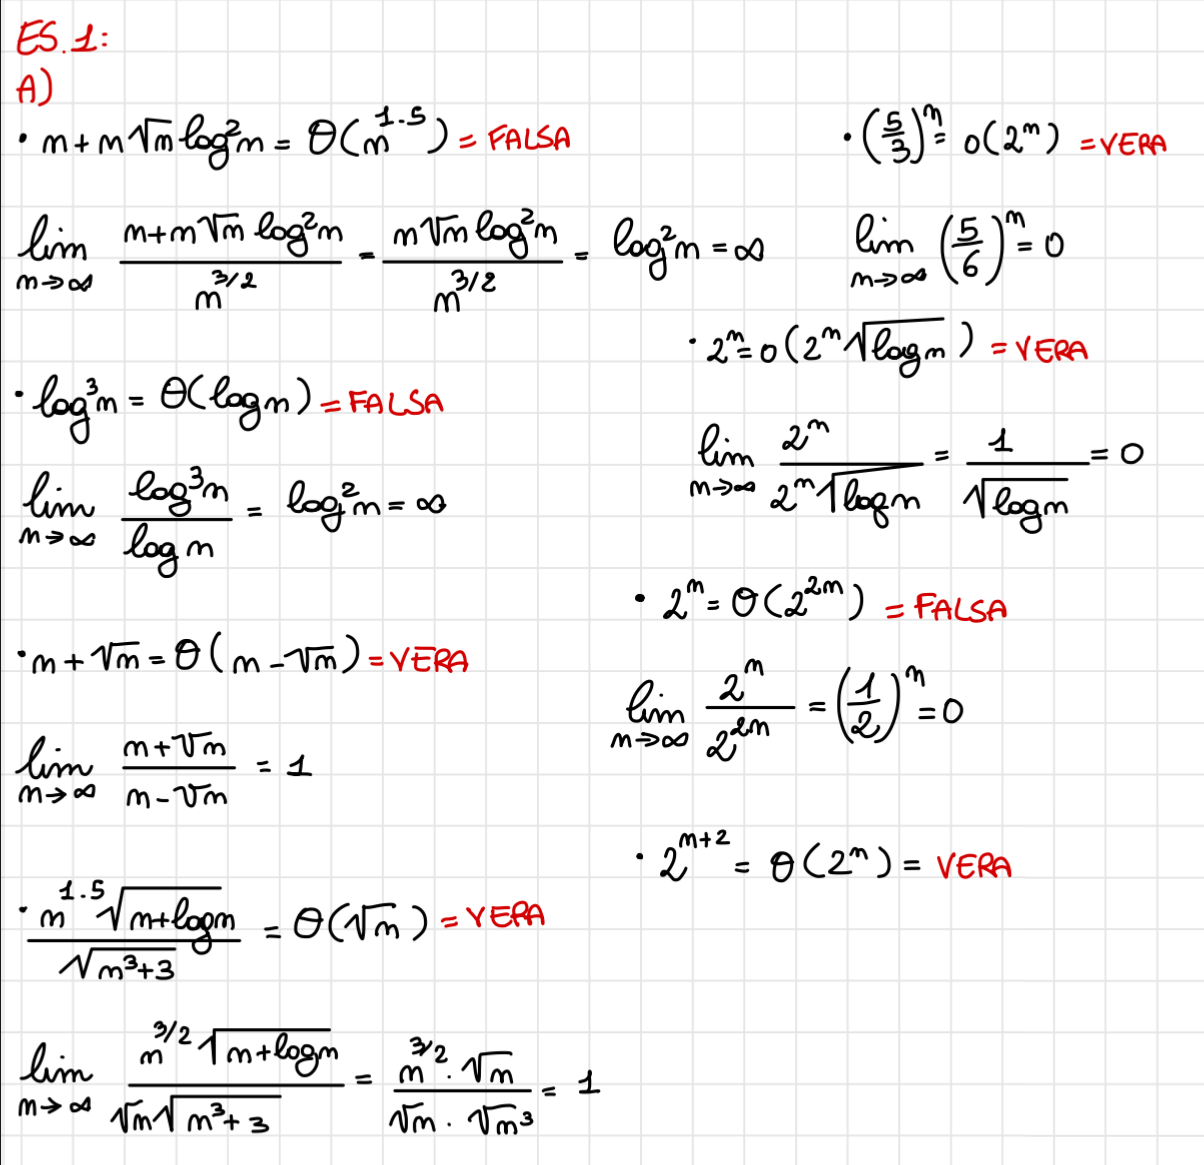 ES.1:
A)
• n + n√n log²n = Θ(n^1.5) = FALSA
lim n→∞ (n+n√n log²n)/(n^3/2) = (n√n log²n)/(n^3/2) = log²n = ∞
• log³n = Θ(log n) = FALSA
lim n→∞ (log³n)/(log n) = log²n = ∞
• n + √n = Θ(n - √n) = VERA
lim n→∞ (n+√n)/(n-√n) = 1
• (n^1.5 √(n+log n))/(√(n³+3)) = Θ(√n) = VERA
lim n→∞ (n^3/2 √(n+log n))/(√n √(n³+3)) = (n^3/2 · √n)/(√n · √n³) = 1
• (5/3)^n = o(2^n) = VERA
lim n→∞ (5/6)^n = 0
• 2^n = o(2^n √(log n)) = VERA
lim n→∞ (2^n)/(2^n √(log n)) = 1/(√(log n)) = 0
• 2^n = Θ(2^2n) = FALSA
lim n→∞ (2^n)/(2^2n) = (1/2)^n = 0
• 2^n+2 = Θ(2^n) = VERA